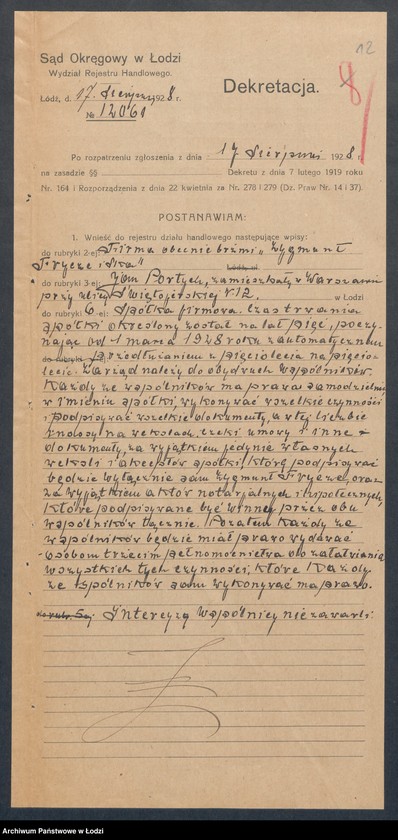 12
8
Sąd Okręgowy w Łodzi
Wydział Rejestru Handlowego.
Łódź, d. 17. Sierpnia 1928 r.
№ 12061
Dekretacja.
Po rozpatrzeniu zgłoszenia z dnia 17 Sierpnia 1928 r.
na zasadzie §§ Dekretu z dnia 7 lutego 1919 roku
Nr. 164 i Rozporządzenia z dnia 22 kwietnia za Nr. 278 i 279 (Dz. Praw Nr. 14 i 37).
POSTANAWIAM:
1. Wnieść do rejestru działu handlowego następujące wpisy:
do rubryki 2-ej: Firma obecnie brzmi „Zygmunt
Frycze i Ska"
do rubryki 3-ej: Jan Portych, zamieszkały w Warszawie
przy ulicy Świętojerskiej № 12. w Łodzi
do rubryki 6. Spółka firmowa. Czas trwania
spółki określony został na lat pięć, poczy-
nając od 1 marca 1928 roku z automatycznem
przedłużaniem z pięciolecia na pięcio-
lecie. Zarząd należy do obydwuch wspólników.
Każdy ze wspólników ma prawo samodzielnie
w imieniu spółki, wykonywać wszelkie czynności
i podpisywać wszelkie dokumenty, a w tej liczbie
na wekslach, czeki umowy i inne
dokumenty, za wyjątkiem jedynie własnych
weksli i akceptów spółki, które podpisywać
będzie wyłącznie sam Zygmunt Frycze, oraz
za wyjątkiem aktów notarjalnych i hipotecznych,
które podpisywane być winny przez obu
wspólników łącznie. Pozatem każdy ze
wspólników będzie miał prawo wydawać
osobom trzecim pełnomocnictwa do załatwiania
wszystkich tych czynności, które każdy
ze wspólników sam wykonywać ma prawo.
do rubr. 5ej Intercyzy wspólnicy nie zawarli.
Archiwum Państwowe w Łodzi